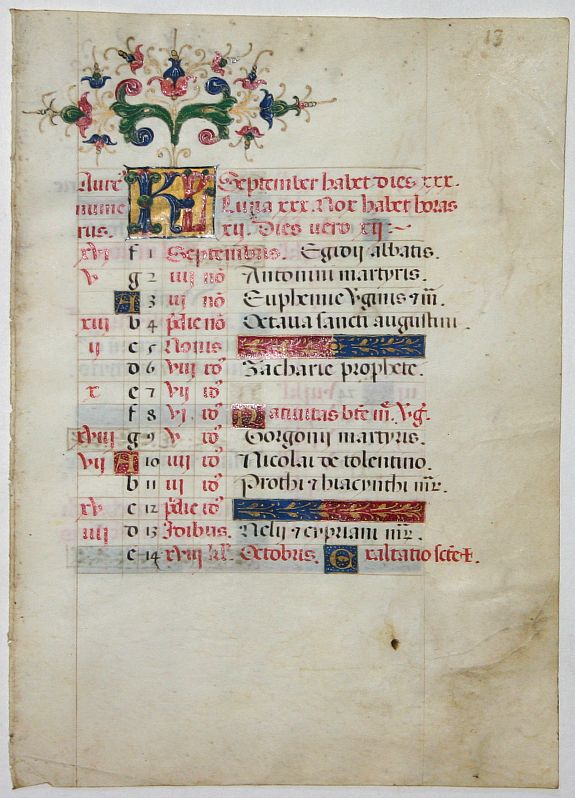 13
Aure KL September habet dies xxx.
nume Luna xxx. Nox habet horas
rus. xij. Dies vero xij
xvi f 1 Septembris. Egidij abbatis.
v g 2 iiij no Antonini martyris.
A 3 iij no Euphemie v̇ginis & m̄.
xiii b 4 p̄die no Octaua sancti augustini.
ii c 5 Nonis
d 6 viij id' Zacharie prophete.
x e 7 vij id'
f 8 vj id' Natiuitas bt̄e m̄. v̇ḡ.
xviii g 9 v id' Gorgonij martyris.
vii A 10 iiij id' Nicolai de tolentino.
b 11 iij id' Prothi & hiacynthi m̄r.
xv c 12 p̄die id'
iiii d 13 Idibus. & cypriani m̄r.
e 14 xviij kl'. Octobris. Exaltatio scte